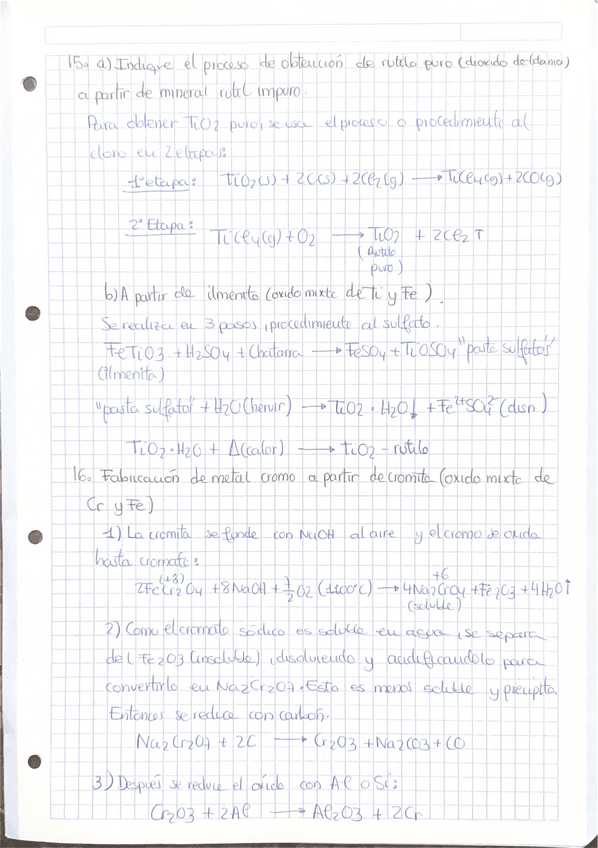 15. a) Indique el proceso de obtención de rutilo puro (dioxido de titanio)
a partir de mineral rutil impuro.
Para obtener TiO2 puro, se usa el proceso o procedimiento al
cloro en 2 etapas:
1ª etapa: TiO2(s) + 2C(s) + 2Cl2(g) → TiCl4(g) + 2CO(g)
2ª Etapa: TiCl4(g) + O2 → TiO2 + 2Cl2 ↑
(Rutilo
puro)
b) A partir de ilmenita (oxido mixto de Ti y Fe).
Se realiza en 3 pasos, procedimiento al sulfato.
FeTiO3 + H2SO4 + Chatarra → FeSO4 + TiOSO4 "pasta sulfatos"
(ilmenita)
"pasta sulfato" + H2O (hervir) → TiO2 · H2O↓ + Fe2+SO4 2- (disn)
TiO2·H2O + Δ(calor) → TiO2 - rutilo
16. Fabricación de metal cromo a partir de cromita (oxido mixto de
Cr y Fe)
1) La cromita se funde con NaOH al aire y el cromo se oxida
hasta cromato:
(+3) +6
2FeCr2O4 + 8NaOH + 7/2 O2 (1100°C) → 4Na2CrO4 + Fe2O3 + 4H2O↑
(soluble)
2) Como el cromato sodico es soluble en agua, se separa
del Fe2O3 (insoluble), disolviendo y acidificandolo para
convertirlo en Na2Cr2O7. Esto es menos soluble y precipita
Entonces se reduce con carbón.
Na2Cr2O7 + 2C → Cr2O3 + Na2CO3 + CO
3) Después se reduce el oxido con Al o Si:
Cr2O3 + 2Al → Al2O3 + 2Cr